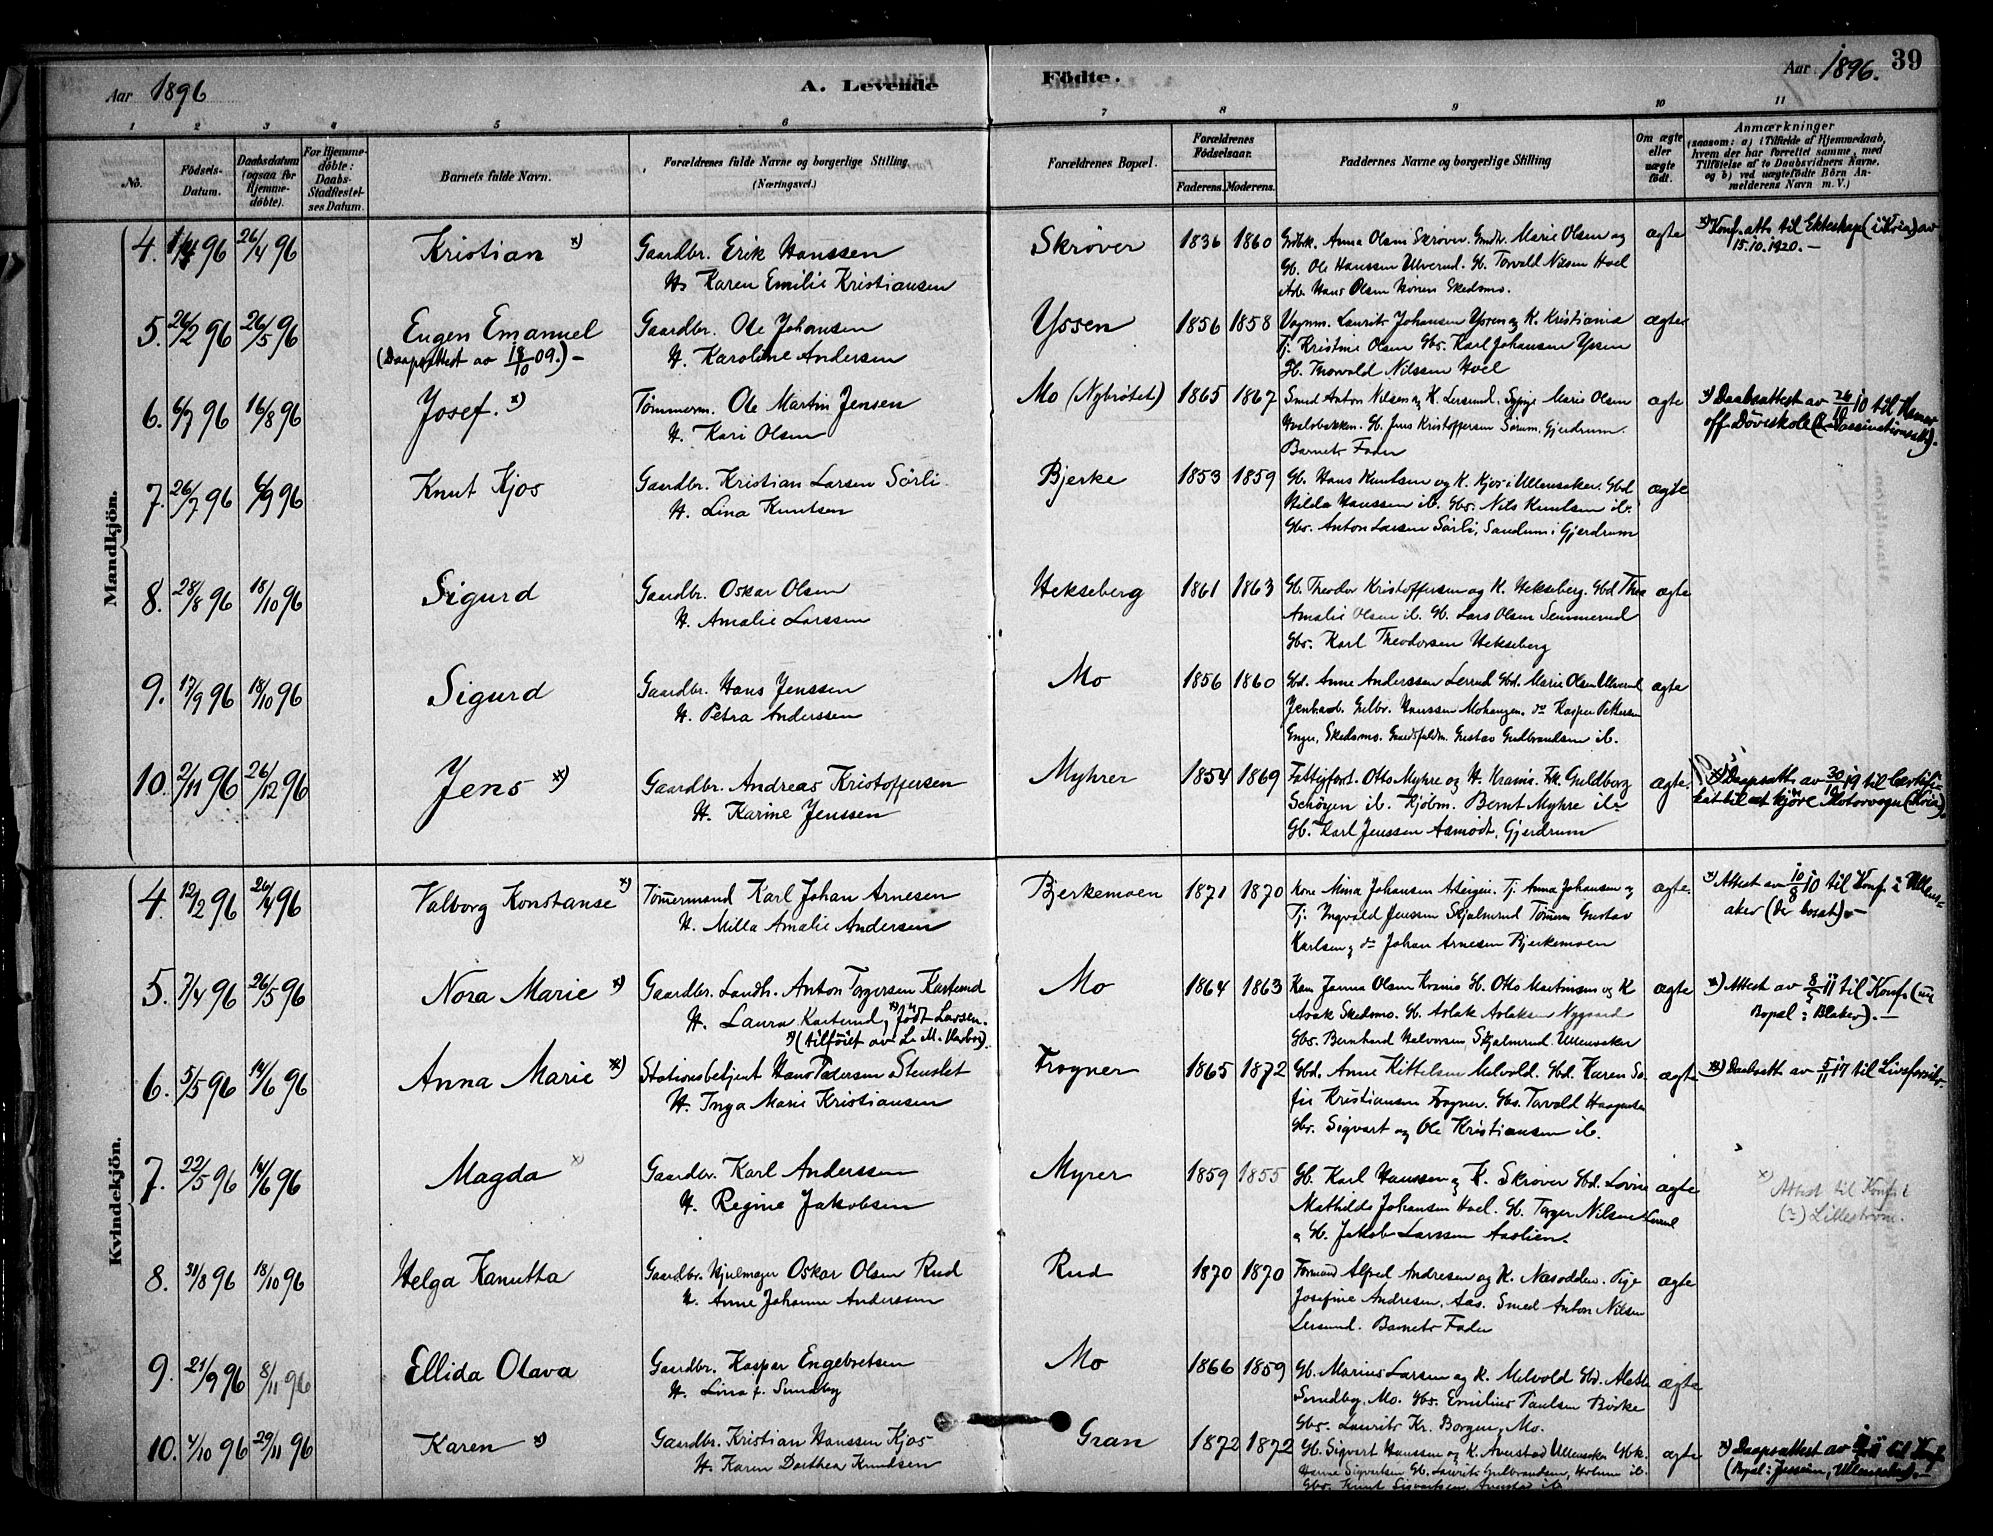 Aar 1896
A. Levende
Födte.
Aar 1896. 39
1 2 3 4 5 6 7 8 9 10 11
No.
Födsels-Datum.
Daabsdatum (ogsaa for Hjemme-döbte).
For Hjemme-döbte: Daabs-Stadfæstel-ses Datum.
Barnets fulde Navn.
Forældrenes fulde Navne og borgerlige Stilling.
(Næringsvei.)
Forældrenes Bopæl.
Forældrenes Födselsaar.
Faderens. Moderens.
Faddernes Navne og borgerlige Stilling
Om ægte eller uægte födt.
Anmærkninger
(saasom: a) i Tilfælde af Hjemmedaab, hvem der har forrettet samme, med Tilföielse af to Daabsvidners Navne, og b) ved uægtefödte Börn An-melderens Navn m. V.)
Mandkjön.
4. 96 26/4 96 Kristian x) Gaardbr. Erik Hanssen Skrøver 1836 1860 Anna Olsen Skrøver. Marie Olsen og ægte
H. Karen Emilie Kristiansen Gb. Ole Hanssen Ulverud. Gb. Torvald Nilsen Hoel
Hans Olsen Skedsmo.
x) Konf. att. til Ekteskap (i Kria) av
15.10.1920.-
5. 26/2 96 26/5 96 Eugen Emanuel Gaardbr. Ole Johansen Yssen 1856 1858 Vognm. Laurits Johansen Yssen og K. Kristiania ægte
(Daapsattest av 18/10 09.)- H. Karoline Andersen Tj. Kristine Olsen Gbs. Karl Johansen Yssen
Gb. Thorvald Nilssen Hoel
6. 6/7 96 16/8 96 Josef. x) Tømmerm. Ole Martin Jensen Mo (Nybrøtet) 1865 1867 Smed Anton Nilsen og K. Lersund. Sypige Marie Olsen ægte
H. Kari Olsen Gb. Jens Kristoffersen Sørum, Gjerdrum.
Barnets Fader
x) Daabsattest av 26/10 10 til Hamar
off. Døveskole
7. 26/7 96 6/9 96 Knut Kjos Gaardbr. Kristian Larsen Sörli Bjerke 1853 1859 Gb. Hans Knutsen og K. Kjos i Ullensaker. Gbd ægte
H. Lina Knutsen Hilda Hanssen ib. Gbs. Nils Knutsen ib.
Gbs. Anton Larssen Sörli, Sandum i Gjerdrum
8. 28/8 96 18/10 96 Sigurd Gaardbr. Oskar Olsen Hekseberg 1861 1863 Gb. Theodor Kristoffersen og K. Hekseberg. Gbd Thea ægte
H. Amalie Larssen Amalie Olsen ib. Gb. Lars Olsen Semmerud
Gbs. Karl Theodorsen Hekseberg
9. 17/9 96 18/10 96 Sigurd Gaardbr. Hans Jenssen Mo 1856 1860 Gbd. Anne Anderssen Lerud Gbd. Marie Olsen Ulverud ægte
H. Petra Anderssen Jenbarb. Gulbr. Hanssen Mohangen. do Kasper Pettersen
Enger, Skedsmo. Gustav Gulbrandsen ib.
10. 2/11 96 26/12 96 Jens x) Gaardbr. Andreas Kristoffersen Myhrer 1854 1869 Fattigforst. Otto Myhre og H. Kranis. Frk. Guldborg ægte.
H. Karine Jenssen Schøyen ib. Kjöbm. Bernt Myhre ib.
Gb. Karl Jenssen Asmodt, Gjerdrum
x) Daapsatt. av 30/10 19 til Certifi-
kat til at kjöre Motorvogn (Kria).
Kvindekjön.
4. 12/2 96 26/4 96 Valborg Konstanse x) Tömermand Karl Johan Arnesen Bjerkemoen 1871 1870 Kone Mina Johansen Asengen. Tj. Anna Johansen og ægte.
H. Milla Amalie Andersen Tj. Ingvald Jenssen Skjalmrud Tömm Gustav
Karlsen og do Johan Arnesen Bjerkemoen
x) Attest av 10/8 10 til Konf. i Ullens-
aker (der bosat).-
5. 7/4 96 26/5 96 Nora Marie x) Gaardbr. Landh. Anton Torgersen Kaslund Mo 1864 1863 Kone Janna Olsen Kranis Gb. Otto Martinsen og K ægte
H. Laura Kaslund, x) født Larssen. Skedsmo. Gb. Aslak Aslaksen Nygaard
x) (tilföiet av L. M. Gbs. Bernhard Halvorsen, Skjalmrud. Ullensaker
x) Attest av 8/5 11 til Konf. (nu
Bopæl: Blaker).-
6. 5/5 96 14/6 96 Anna Marie x) Stationsbetjent Hans Pedersen Stenslet Frogner 1865 1872 Gbd. Anne Kittelsen Melvold. Gbd. Karen So- ægte
H. Inga Marie Kristiansen fie Kristiansen Frogner. Gbs. Torvald Haagensen
Gbs. Sigvart og Ole Kristiansen ib.
x) Daabsatt av 5/11 17 til Livsforsikr.
7. 22/5 96 14/6 96 Magda x) Gaardbr. Karl Anderssen Myrer 1859 1855 Gb. Karl Hanssen og K. Skrøver Gbd. Lovise ægte
H. Regine Jakobsen Mathilde Johansen Hoel. Gb. Torger Nilsen Lerud
og Gb. Jakob Larssen Aaslien.
x) Attest til Konf. i
(?) Lilleström.
8. 31/8 96 18/10 96 Helga Kanutta Gaardbr. Hjulmager Oskar Olsen Rud Rud 1870 1870 Formand Alfred Andresen og K. Næsodden. Pige ægte
H. Anne Johanne Anderssen Josefine Andresen, Aas. Smed Anton Nilsen
Lersund. Barnets Fader
9. 21/9 96 8/11 96 Ellida Olava Gaardbr. Kasper Engebretsen Mo 1866 1859 Gb. Marius Larsen og K. Melvold Gbd. Alette ægte
H. Lina f. Sundby Sundby, Mo. Gbs. Emilius Paulsen Börke
Gbs. Laurits Kr. Borgen, Mo.
10. 4/10 96 29/11 96 Karen x) Gaardbr. Kristian Hanssen Kjos Gran 1872 1872 Gb. Sigvart Hanssen og K. Aurstad Ullensaker Gbk. ægte
H. Karen Dorthea Knudsen Hanne Sigvartsen Gb. Laurits Gulbrandsen, Holum ib.
Gbs. Knut Sigvartsen Aurstad ib
x) Daapsattest av 11 til Konf.
(Bopæl: Jessein, Ullensaker).-